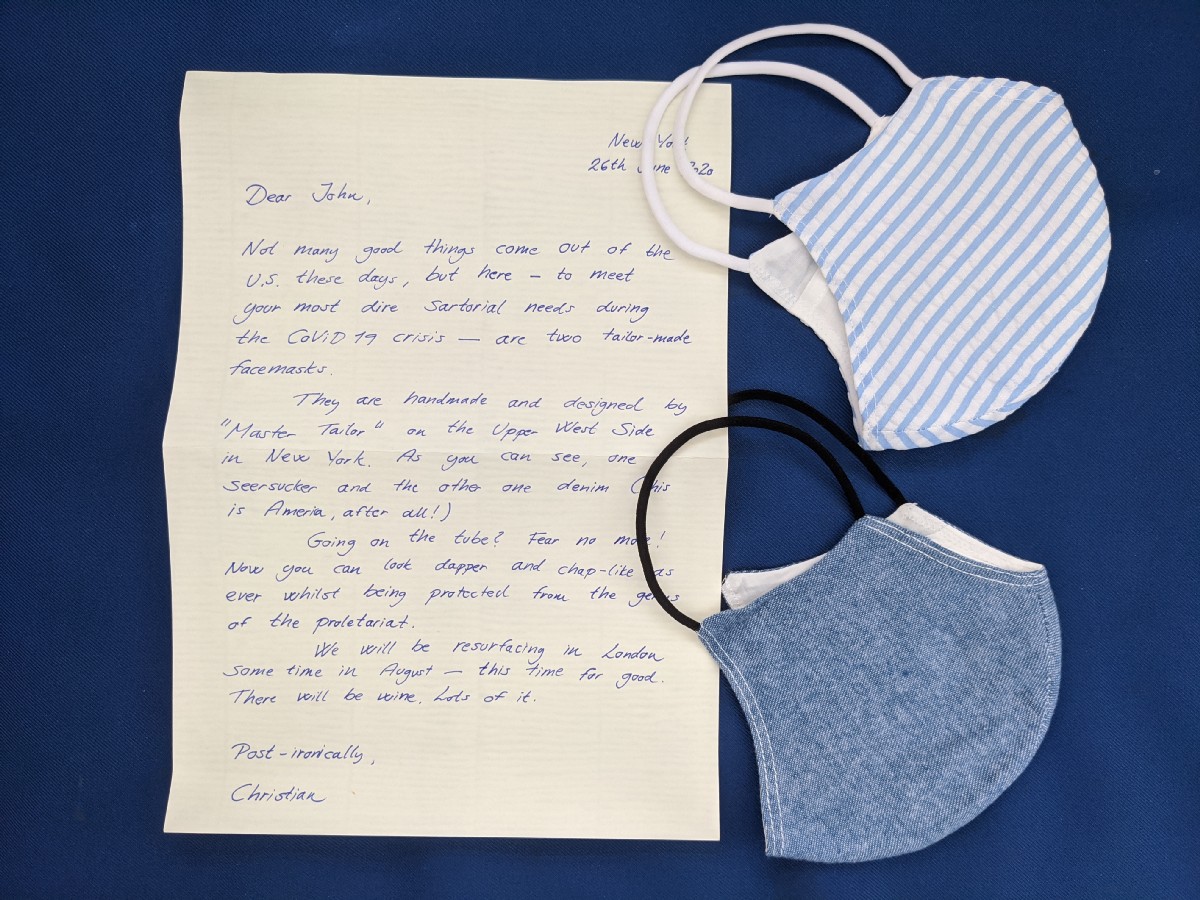 New York
26th June 2020
Dear John,
Not many good things come out of the
U.S. these days, but here – to meet
your most dire Sartorial needs during
the CoViD 19 crisis — are two tailor-made
facemasks.
They are handmade and designed by
"Master Tailor" on the Upper West Side
in New York. As you can see, one
Seersucker and the othe one denim (this
is Ameria, after all!)
Going on the tube? Fear no more!
Now you can look dapper and chap-like as
ever whilst being protected from the germs
of the proletariat.
We will be resurfacing in London
some time in August — this time for good.
There will be wine. Lots of it.
Post-ironically,
Christian